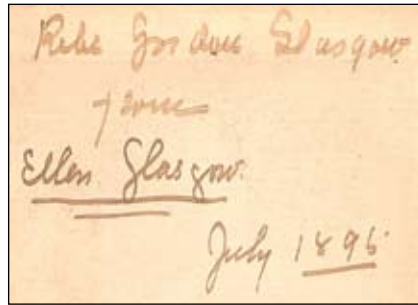 Rebe Gordon Glasgow
from
Ellen Glasgow.
July 1896